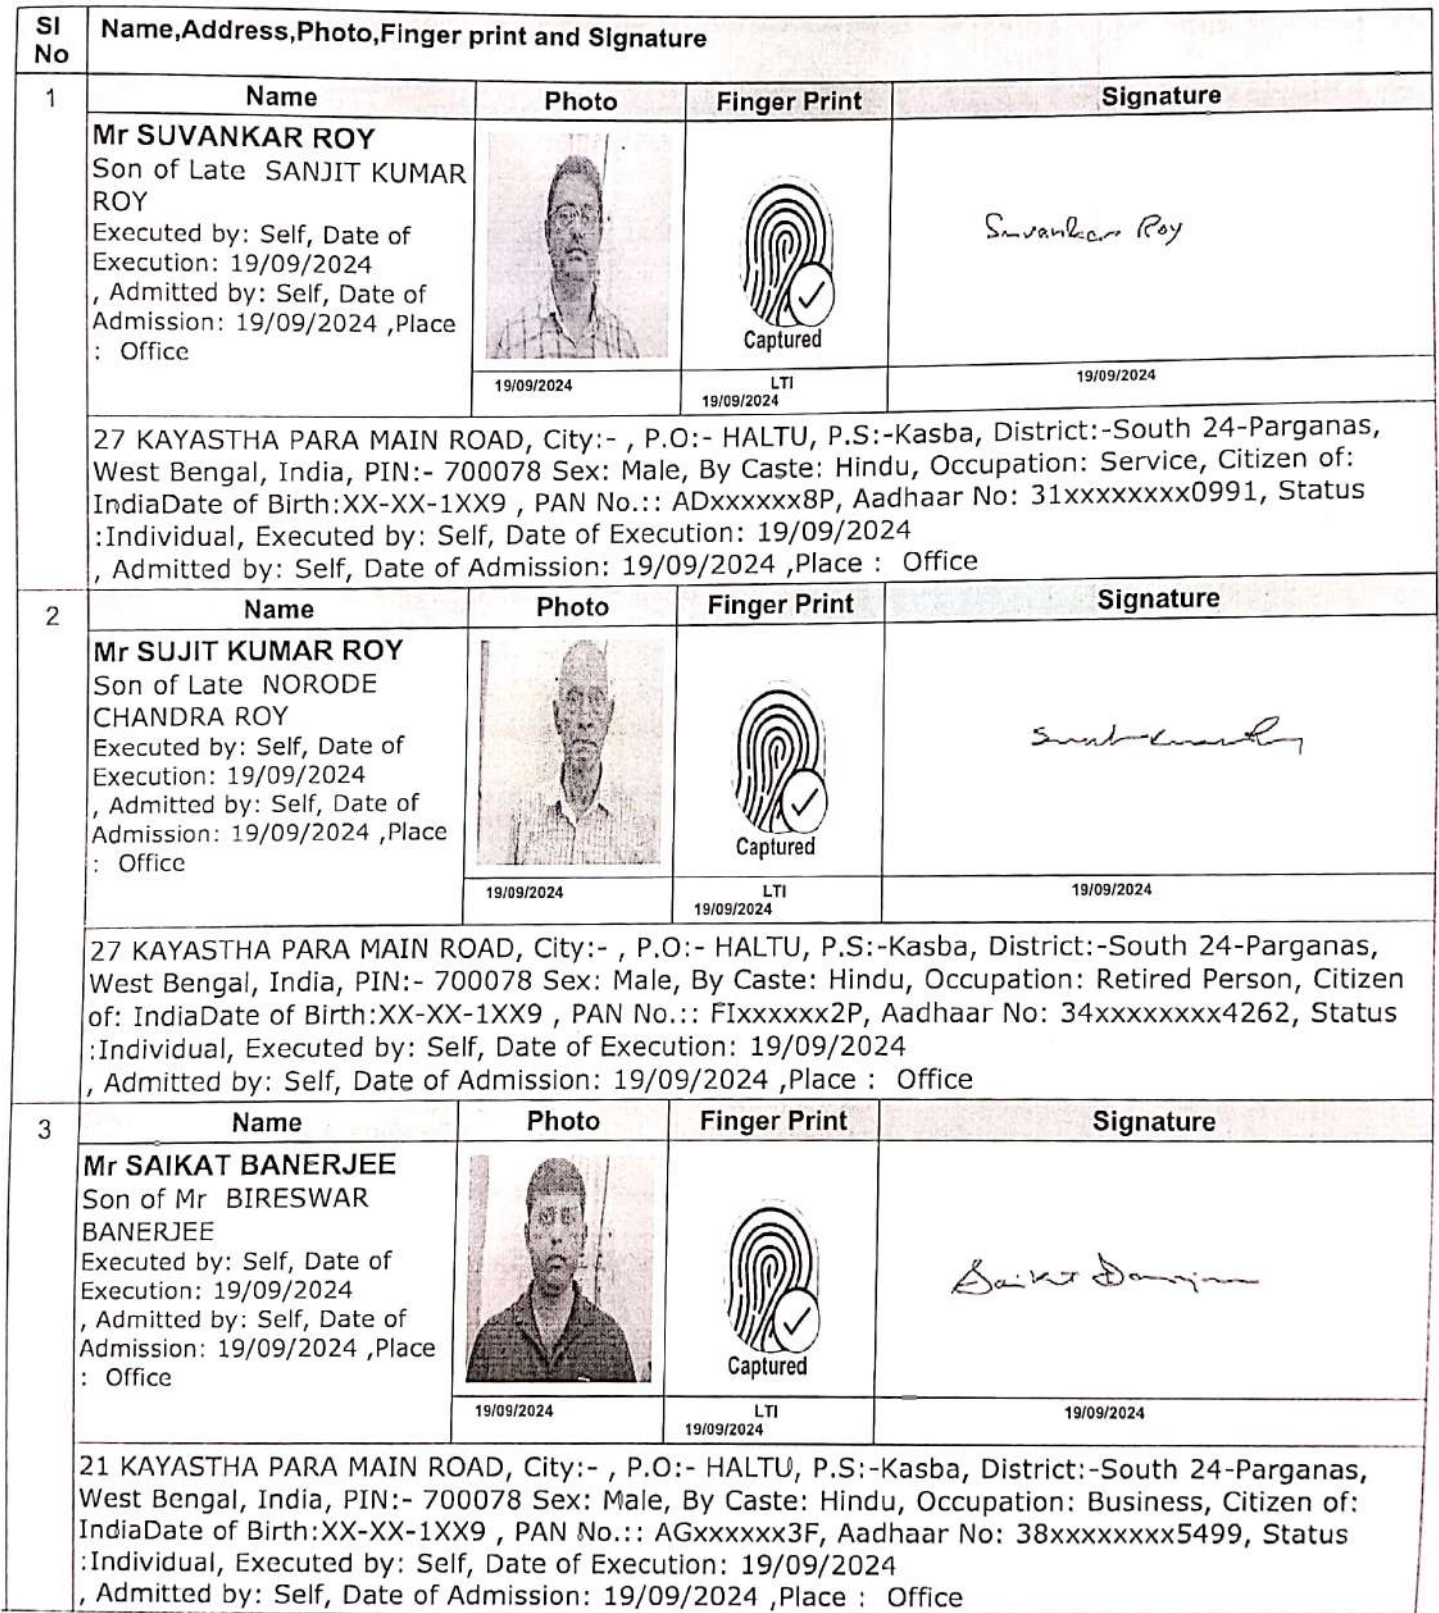 Sl No Name,Address,Photo,Finger print and Signature
1 Name Photo Finger Print Signature
Mr SUVANKAR ROY
Son of Late SANJIT KUMAR
ROY
Executed by: Self, Date of
Execution: 19/09/2024
, Admitted by: Self, Date of
Admission: 19/09/2024 ,Place
: Office
Captured
Suvankar Roy
19/09/2024 LTI 19/09/2024
19/09/2024
27 KAYASTHA PARA MAIN ROAD, City:- , P.O:- HALTU, P.S:-Kasba, District:-South 24-Parganas,
West Bengal, India, PIN:- 700078 Sex: Male, By Caste: Hindu, Occupation: Service, Citizen of:
IndiaDate of Birth:XX-XX-1XX9 , PAN No.:: ADxxxxxx8P, Aadhaar No: 31xxxxxxxx0991, Status
:Individual, Executed by: Self, Date of Execution: 19/09/2024
, Admitted by: Self, Date of Admission: 19/09/2024 ,Place : Office
2 Name Photo Finger Print Signature
Mr SUJIT KUMAR ROY
Son of Late NORODE
CHANDRA ROY
Executed by: Self, Date of
Execution: 19/09/2024
, Admitted by: Self, Date of
Admission: 19/09/2024 ,Place
: Office
Captured
Sujit Kumar Roy
19/09/2024 LTI 19/09/2024
19/09/2024
27 KAYASTHA PARA MAIN ROAD, City:- , P.O:- HALTU, P.S:-Kasba, District:-South 24-Parganas,
West Bengal, India, PIN:- 700078 Sex: Male, By Caste: Hindu, Occupation: Retired Person, Citizen
of: IndiaDate of Birth:XX-XX-1XX9 , PAN No.:: FIxxxxxx2P, Aadhaar No: 34xxxxxxxx4262, Status
:Individual, Executed by: Self, Date of Execution: 19/09/2024
, Admitted by: Self, Date of Admission: 19/09/2024 ,Place : Office
3 Name Photo Finger Print Signature
Mr SAIKAT BANERJEE
Son of Mr BIRESWAR
BANERJEE
Executed by: Self, Date of
Execution: 19/09/2024
, Admitted by: Self, Date of
Admission: 19/09/2024 ,Place
: Office
Captured
Saikat Banerjee
19/09/2024 LTI 19/09/2024
19/09/2024
21 KAYASTHA PARA MAIN ROAD, City:- , P.O:- HALTU, P.S:-Kasba, District:-South 24-Parganas,
West Bengal, India, PIN:- 700078 Sex: Male, By Caste: Hindu, Occupation: Business, Citizen of:
IndiaDate of Birth:XX-XX-1XX9 , PAN No.:: AGxxxxxx3F, Aadhaar No: 38xxxxxxxx5499, Status
:Individual, Executed by: Self, Date of Execution: 19/09/2024
, Admitted by: Self, Date of Admission: 19/09/2024 ,Place : Office